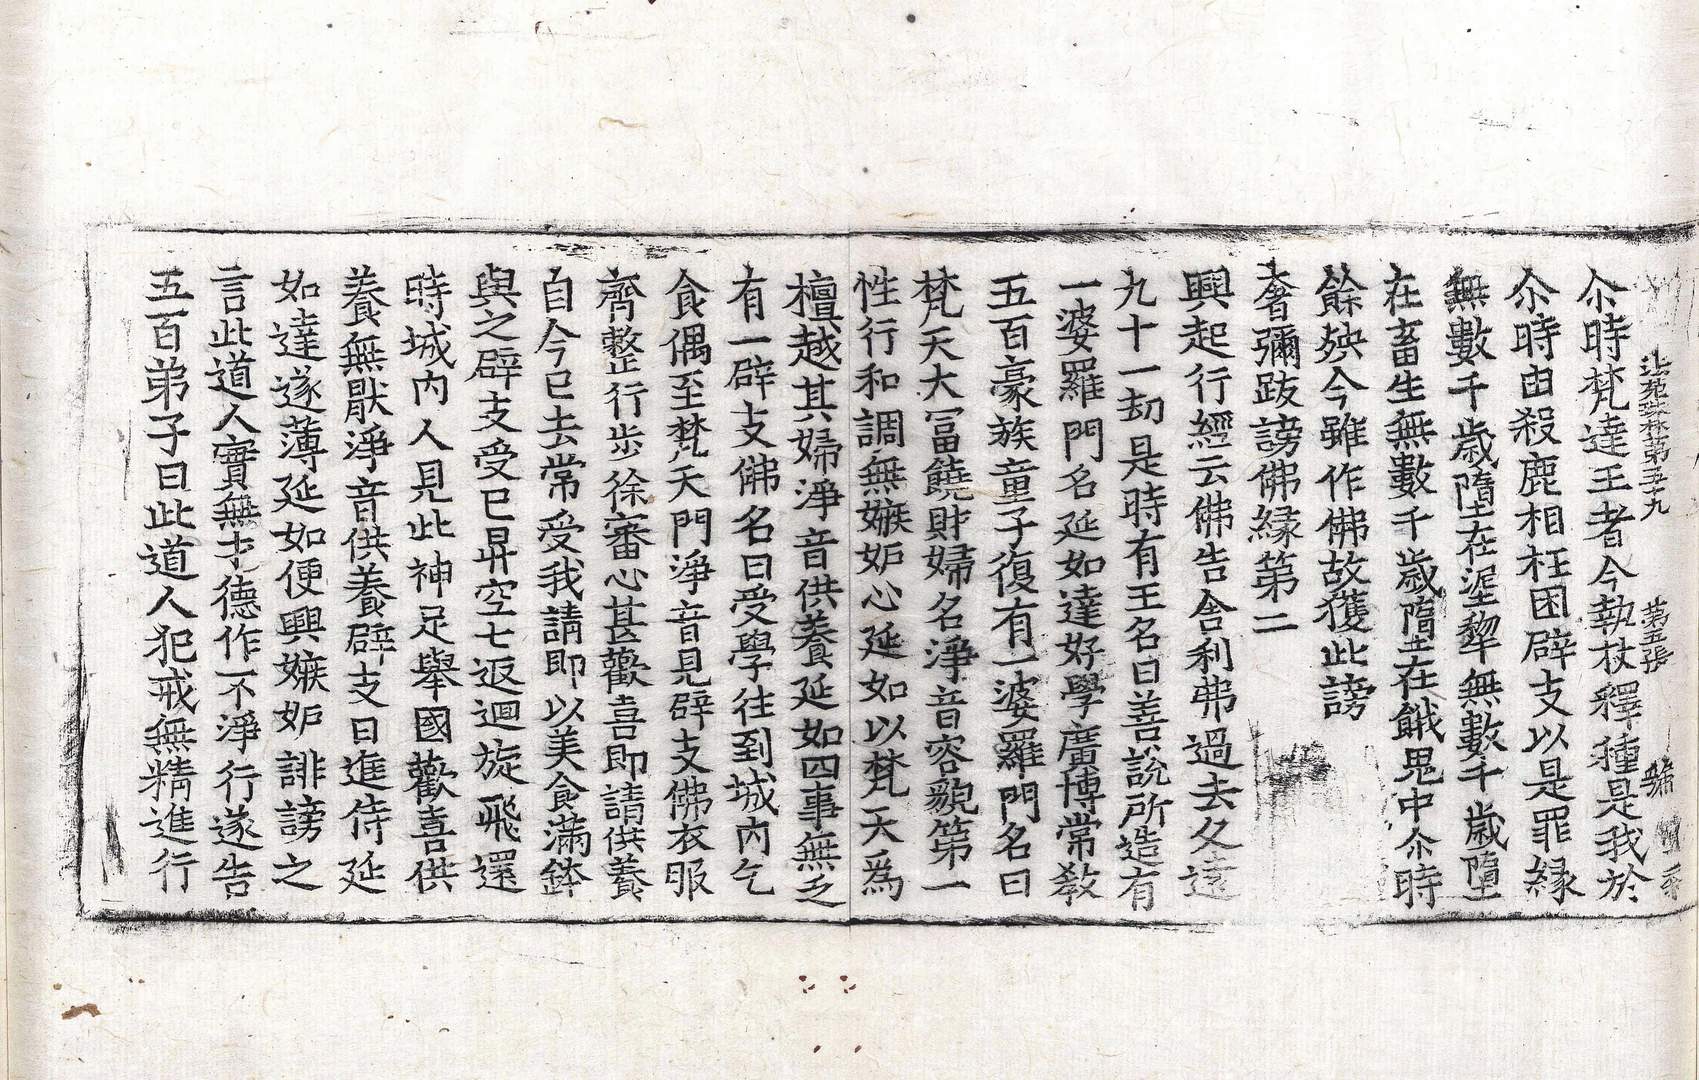 法苑珠林第五十九 第五張
尒時梵達王者今執杖釋種是我於
尒時由殺鹿相枉困辟支以是罪緣
無數千歲墮在埿犂無數千歲墮
在畜生無數千歲墮在餓鬼中尒時
餘殃今雖作佛故獲此謗
奢彌跋謗佛緣第二
興起行經云佛告舍利弗過去久遠
九十一劫是時有王名曰善說所造有
一婆羅門名延如達好學廣博常教
五百豪族童子復有一婆羅門名曰
梵天大冨饒財婦名淨音容貌第一
性行和調無嫉妒心延如以梵天爲
檀越其婦淨音供養延如四事無乏
有一辟支佛名曰受學往到城內乞
食偶至梵天門淨音見辟支佛衣服
齊整行步徐審心甚歡喜即請供養
自今已去常受我請即以美食滿鉢
與之辟支受已昇空七返迴旋飛還
時城內人見此神足舉國歡喜供
養無猒淨音供養辟支日進侍延
如達遂薄延如便興嫉妒誹謗之
言此道人實無才德作不淨行遂告
五百弟子曰此道人犯戒無精進行